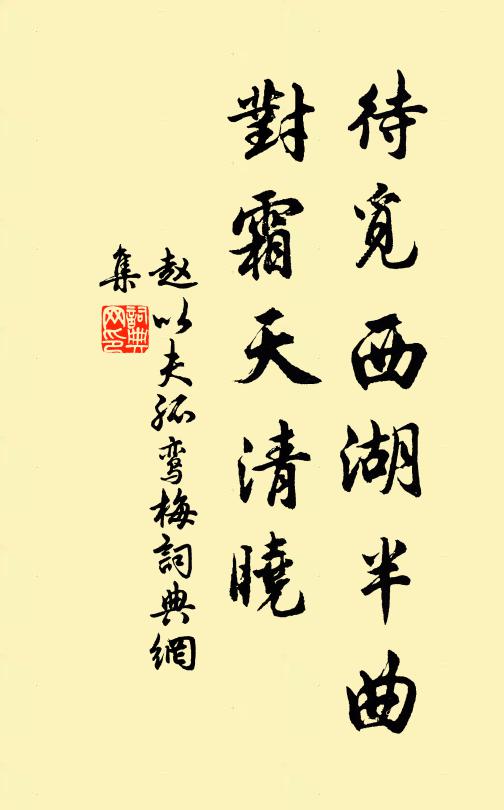 待覓西湖半曲
對霜天清曉
赵以夫孤鸾梅詞典網
集
詞典网印